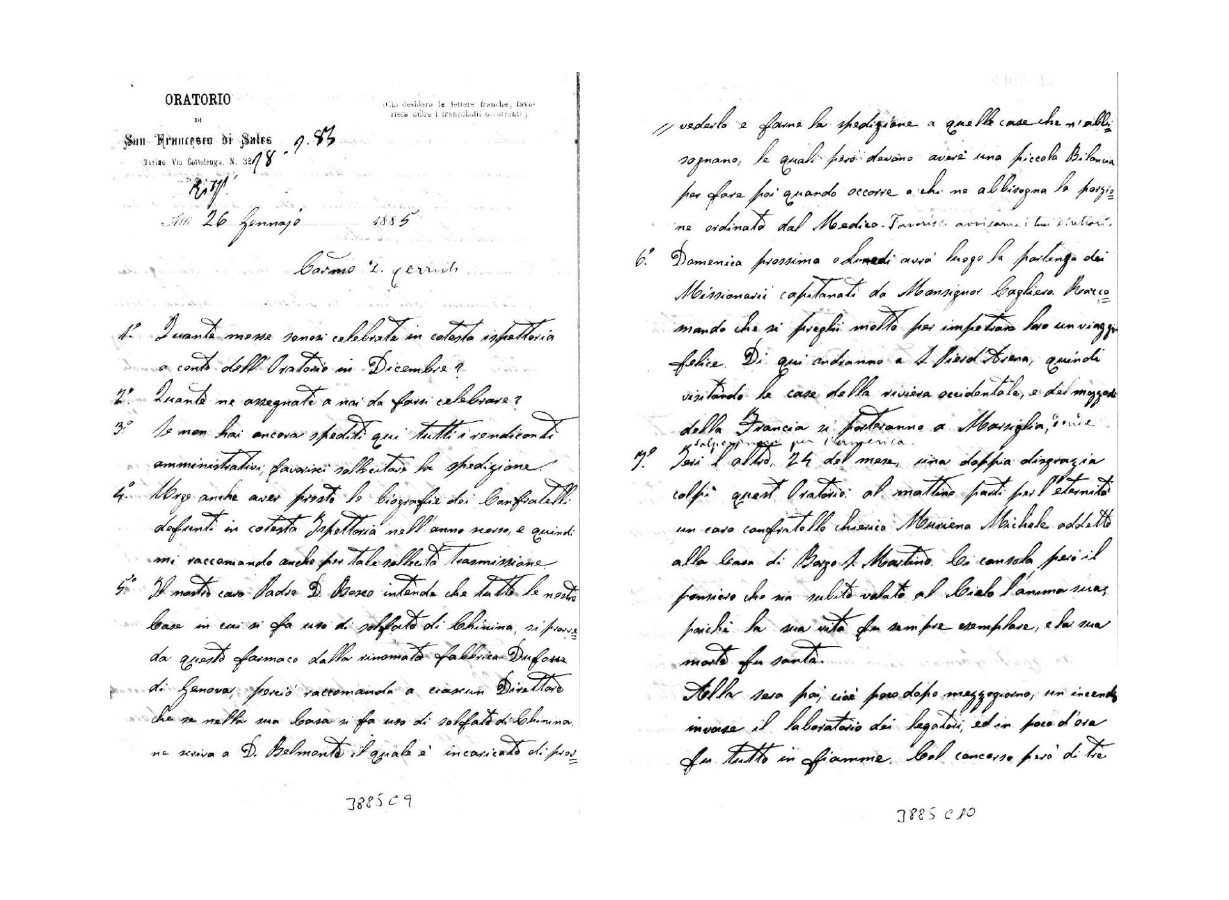 ORATORIO
DI
San Francesco di Sales
Torino, Via Cottolengo, N. 32
(Chi desidera le lettere franche, favo-
risca unire i francobolli occorrenti)
9.83
18.
Addì 26 Gennajo 1885
Carmo D.
1º. Quante messe sonosi celebrate in cotesta ispettoria
a conto dell'Oratorio in Dicembre?
2º. Quante ne assegnate a noi da farsi celebrare?
3º Se non hai ancora spediti qui tutti i rendiconti
amministrativi, favorisci sollecitare la spedizione
4º. Urge anche aver presto le biografie dei Confratelli
defunti in cotesta Ispettoria nell'anno scorso, e quindi
mi raccomando anche per tale sollecita trasmissione
5º. Il nostro caro Padre D. Bosco intende che tutte le nostre
Case in cui si fa uso di solfato di Chinina, si provve=
da questo farmaco dalla rinomata fabbrica Dufour
di Genova, perciò raccomanda a ciascun Direttore
che se nella sua Casa si fa uso di solfato di Chinina,
ne scriva a D. Belmonte il quale è incaricato di prov=
3885 C 9
// vederlo e farne la spedizione a quelle case che n'abbi=
sognano, le quali però devono avere una piccola Bilancia
per fare poi quando occorre a chi ne abbisogna la porzio=
ne ordinata dal Medico. Favorisci avvisarne i tuoi Direttori.
6º. Domenica prossima o Lunedì avrà luogo la partenza dei
Missionarii capitanati da Monsignor Cagliero. Racco=
mando che si preghi molto per impetrare loro un viaggio
felice. Di qui andranno a S. Pierd'Arena, quindi
visitando le case della riviera occidentale, e del mezzodì
della Francia si porteranno a Marsiglia, donde
salperanno per l'America.
7º. Ieri l'altro, 24 del mese, una doppia disgrazia
colpì quest'Oratorio: al mattino partì per l'eternità
un caro confratello chierico Muriena Michele addetto
alla Casa di Borgo S. Martino. Ci consola però il
pensiero che sia subito volato al Cielo l'anima sua,
poichè la sua vita fu sempre esemplare, e la sua
morte fu santa.
Alla sera poi, cioè poco dopo mezzogiorno, un incendio
invase il laboratorio dei legatori, ed in poco d'ora
fu tutto in fiamme. Col concorso però di tre
3885 C 10